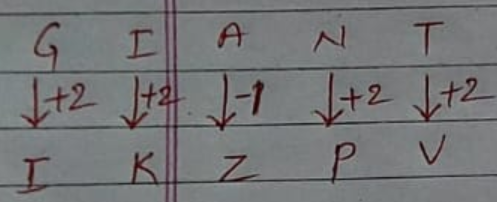 G I A N T
↓+2 ↓+2 ↓-1 ↓+2 ↓+2
I K Z P V